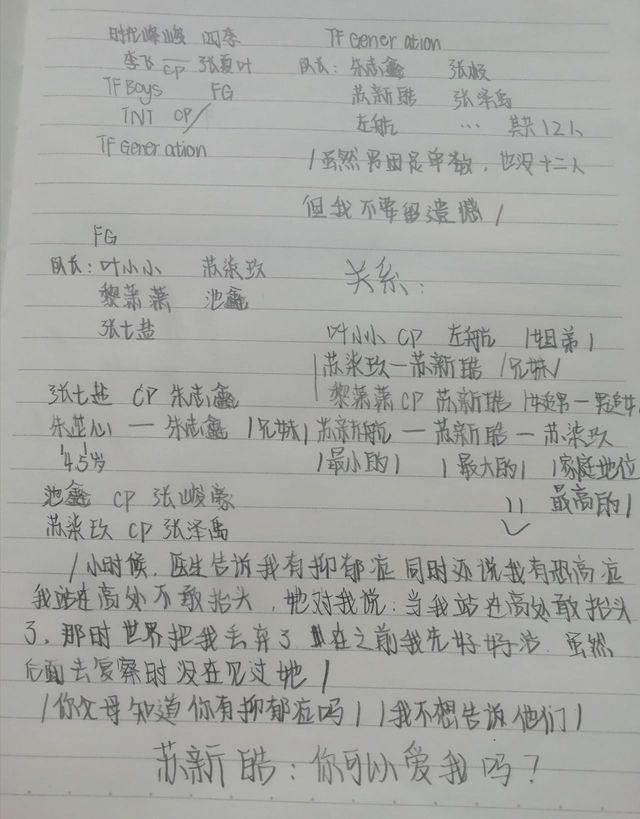 时代峰峻 四季 TF Gener ation
李飞 CP 张夏叶 队长：朱志鑫 张极
TF Boys FG 苏新皓 张泽禹
TNT CP/ 左航 … 共12人
TF Gener ation /虽然男团是单数，也没十二人
但我不要留遗憾/
FG
队长：叶小小 苏柒玖 关系：
黎萧萧 池鑫
张七盐
叶小小 CP 左航 /姐弟/
/苏柒玖—苏新皓 /兄妹/
张七盐 CP 朱志鑫 黎萧萧CP 苏新皓 /女追男—男追女/
朱芷心 — 朱志鑫 /兄妹/ 苏新航 — 苏新皓 — 苏柒玖
4.5岁 /最小的/ /最大的/ /家庭地位
池鑫 CP 张峻豪 最高的/
苏柒玖 CP 张泽禹
/小时候，医生告诉我有抑郁症 同时还说我有恐高症
我站在高处不敢抬头，她对我说：当我站在高处敢抬头
了，那时世界把我丢弃了 在之前我先好好活 虽然
后面去复察时没在见过她/
/你父母知道你有抑郁症吗/ /我不想告诉他们/
苏新皓：你可以爱我吗？